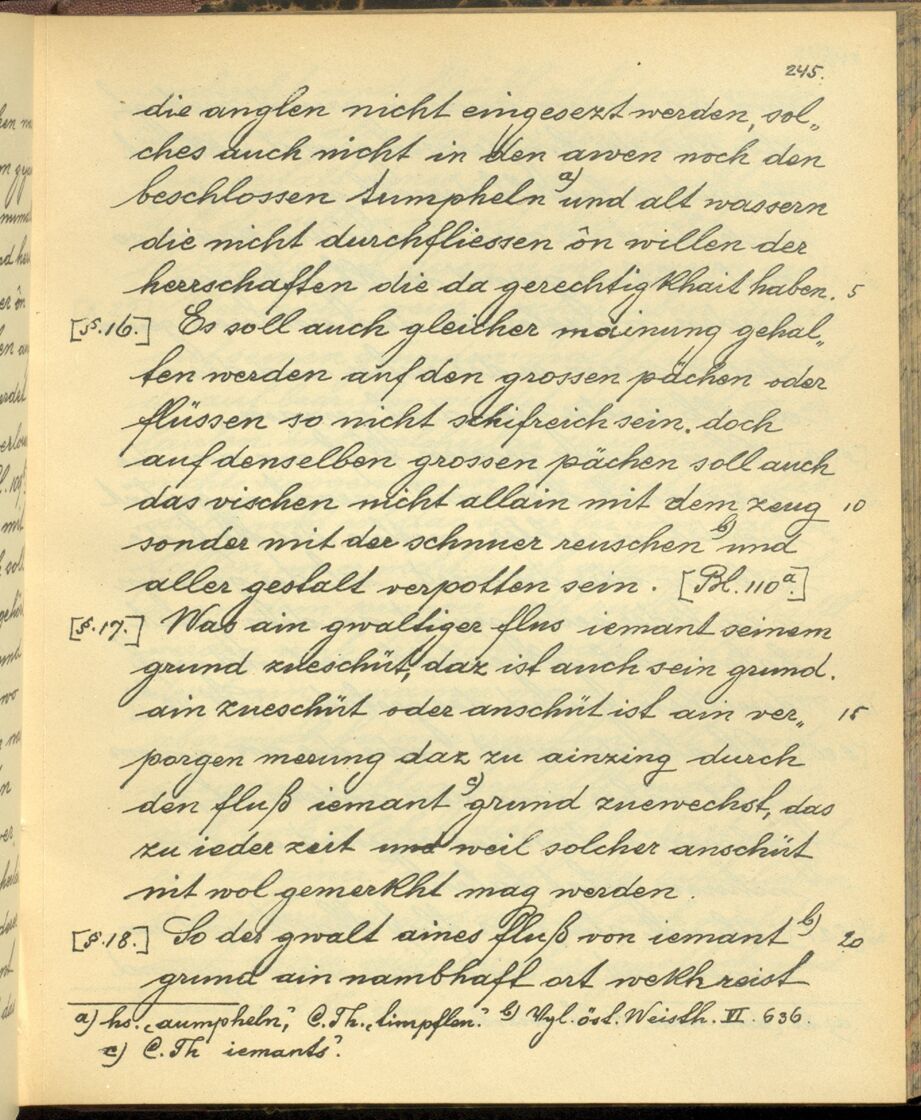 245.
die anglen nicht eingesezt werden, sol„
ches auch nicht in den awen noch den
beschlossen tumpheln a) und alt wassern
die nicht durchfliessen ôn willen der
herrschaften die da gerechtigkhait haben. 5
[§.16.] Es soll auch gleicher mainung gehal„
ten werden auf den grossen pächen oder
flüssen so nicht schifreich sein. doch
auf denselben grossen pächen soll auch
das vischen nicht allain mit dem zeug 10
sonder mit der schnuer reuschen b) und
aller gestalt verpotten sein. [Bl. 110a.]
[§.17.] Was ain gwaltiger flus iemant seinem
grund zueschüt, daz ist auch sein grund.
ain zueschüt oder anschüt ist ain ver„ 15
porgen merung daz zu ainzing durch
den fluß iemant c) grund zuewechst, das
zu ieder zeit und weil solcher anschüt
nit wol gemerkht mag werden.
[§.18.] So der gwalt aines fluß von iemant b) 20
grund ain nambhaft ort wekhreist
a) hs. „aumpheln“, C. Th. „timpflen“. b) Vgl. öst. Weisth. VI. 636.
c) C. Th „iemants“.